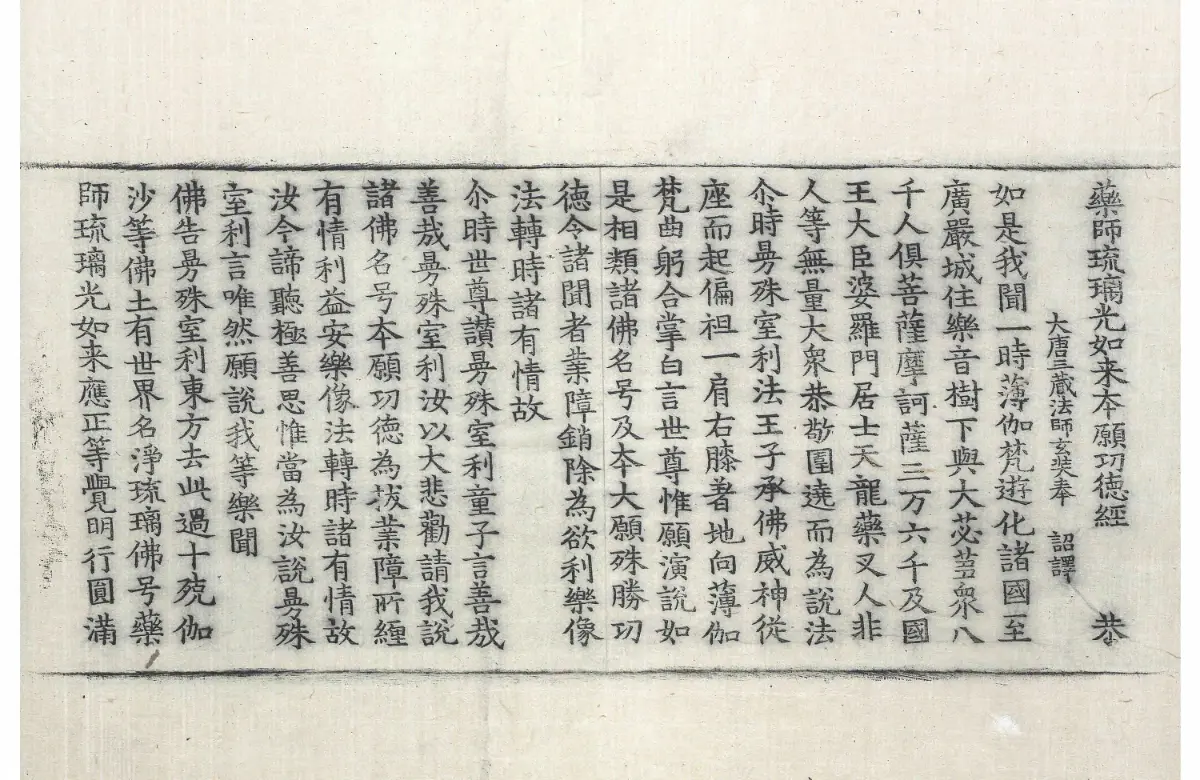 藥師琉璃光如来本願功徳經 恭
大唐三蔵法師玄奘奉 詔譯
如是我聞一時薄伽梵遊化諸國至
廣嚴城住樂音樹下與大苾蒭衆八
千人俱菩薩摩訶薩三万六千及國
王大臣婆羅門居士天龍藥叉人非
人等無量大衆恭敬圍遶而為說法
尒時㬅殊室利法王子承佛威神從
座而起偏袒一肩右膝著地向薄伽
梵曲躬合掌白言世尊惟願演說如
是相類諸佛名号及本大願殊勝功
德令諸聞者業障銷除為欲利樂像
法轉時諸有情故
尒時世尊讃㬅殊室利童子言善哉
善哉㬅殊室利汝以大悲勸請我說
諸佛名号本願功德為拔業障所纏
有情利益安樂像法轉時諸有情故
汝今諦聽極善思惟當為汝說㬅殊
室利言唯然願說我等樂聞
佛告㬅殊室利東方去此過十殑伽
沙等佛土有世界名淨琉璃佛号藥
師琉璃光如来應正等覺明行圓滿